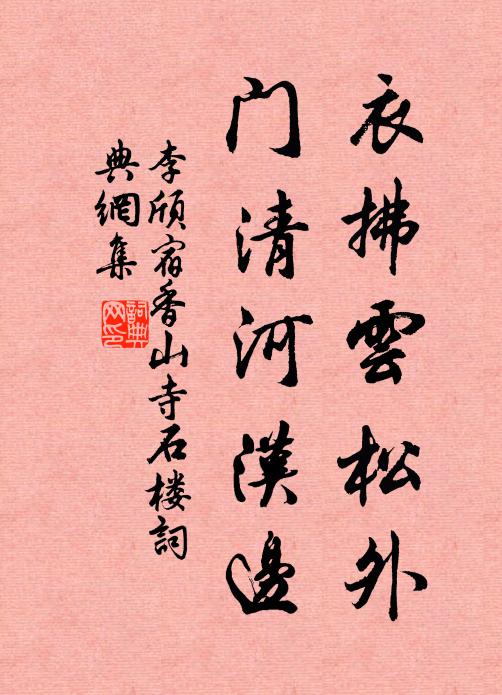 衣拂雲松外
門清河漢邊
李頎宿香山寺石楼詞
典網集
詞典网印